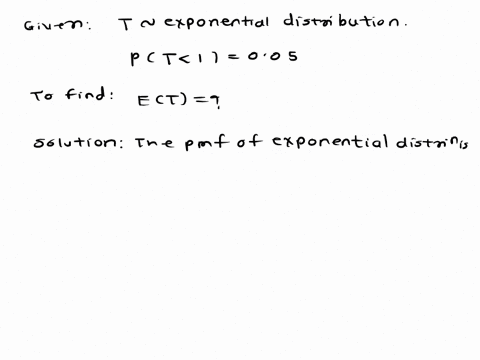 Given: T ~ exponential distribution.
P(T<1) = 0.05
To find: E(T) = ?
Solution: The pmf of exponential distrin is